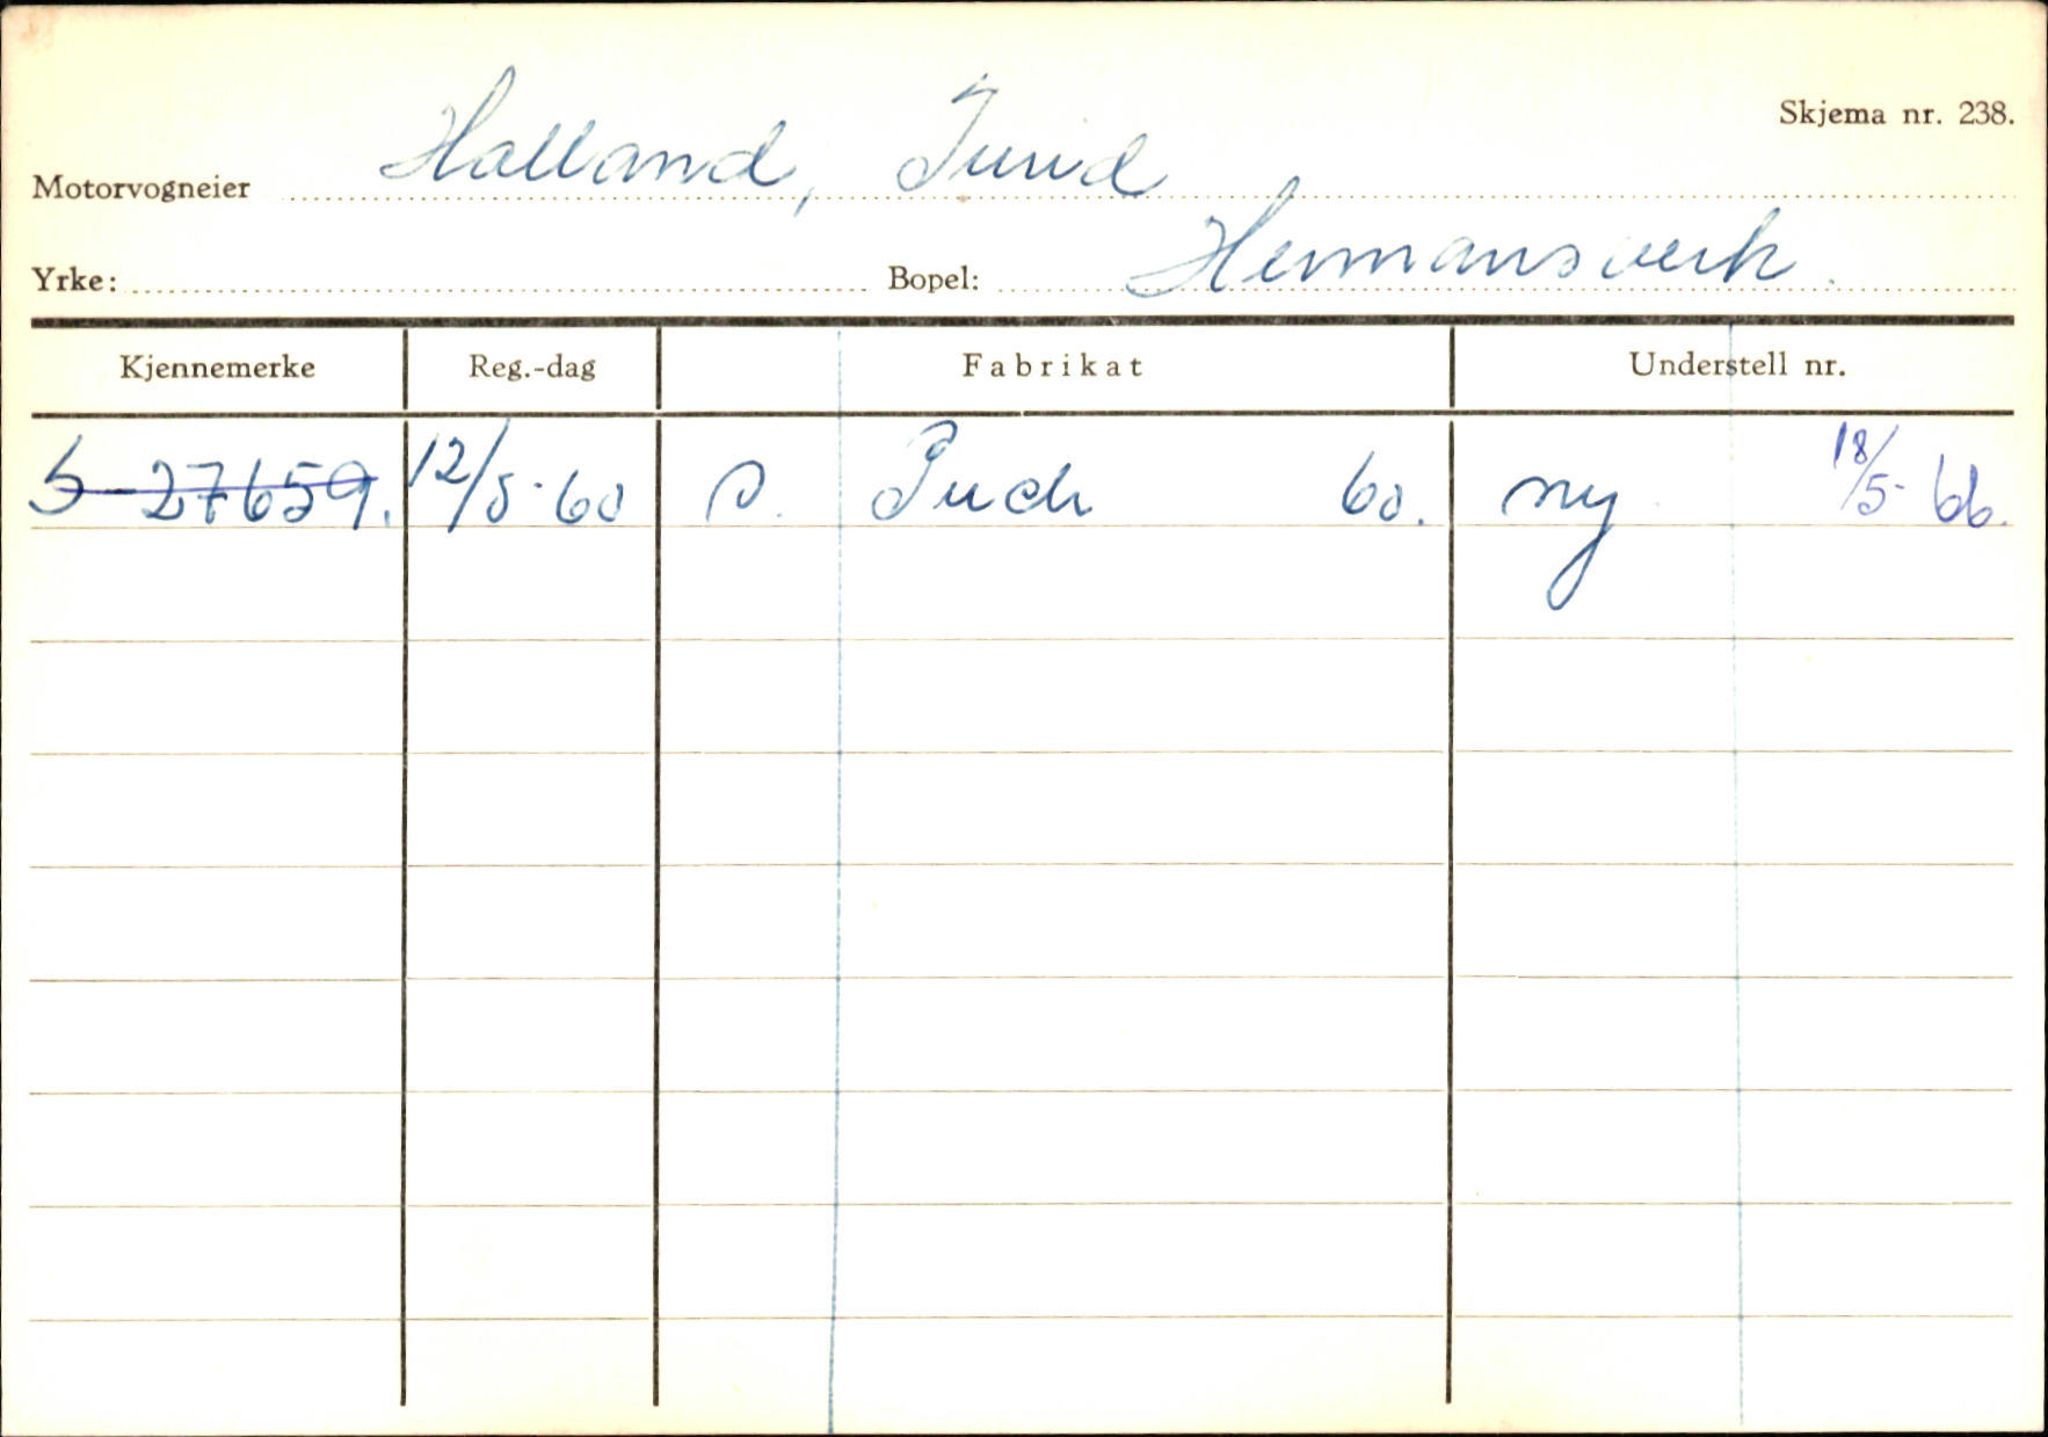 Skjema nr. 238.
Motorvogneier Halland, Turid
Yrke: Bopel: Hermansverk.
Kjennemerke Reg.-dag Fabrikat Understell nr.
S-27659. 12/5-60 s. Puch 60. ny 18/5-66.